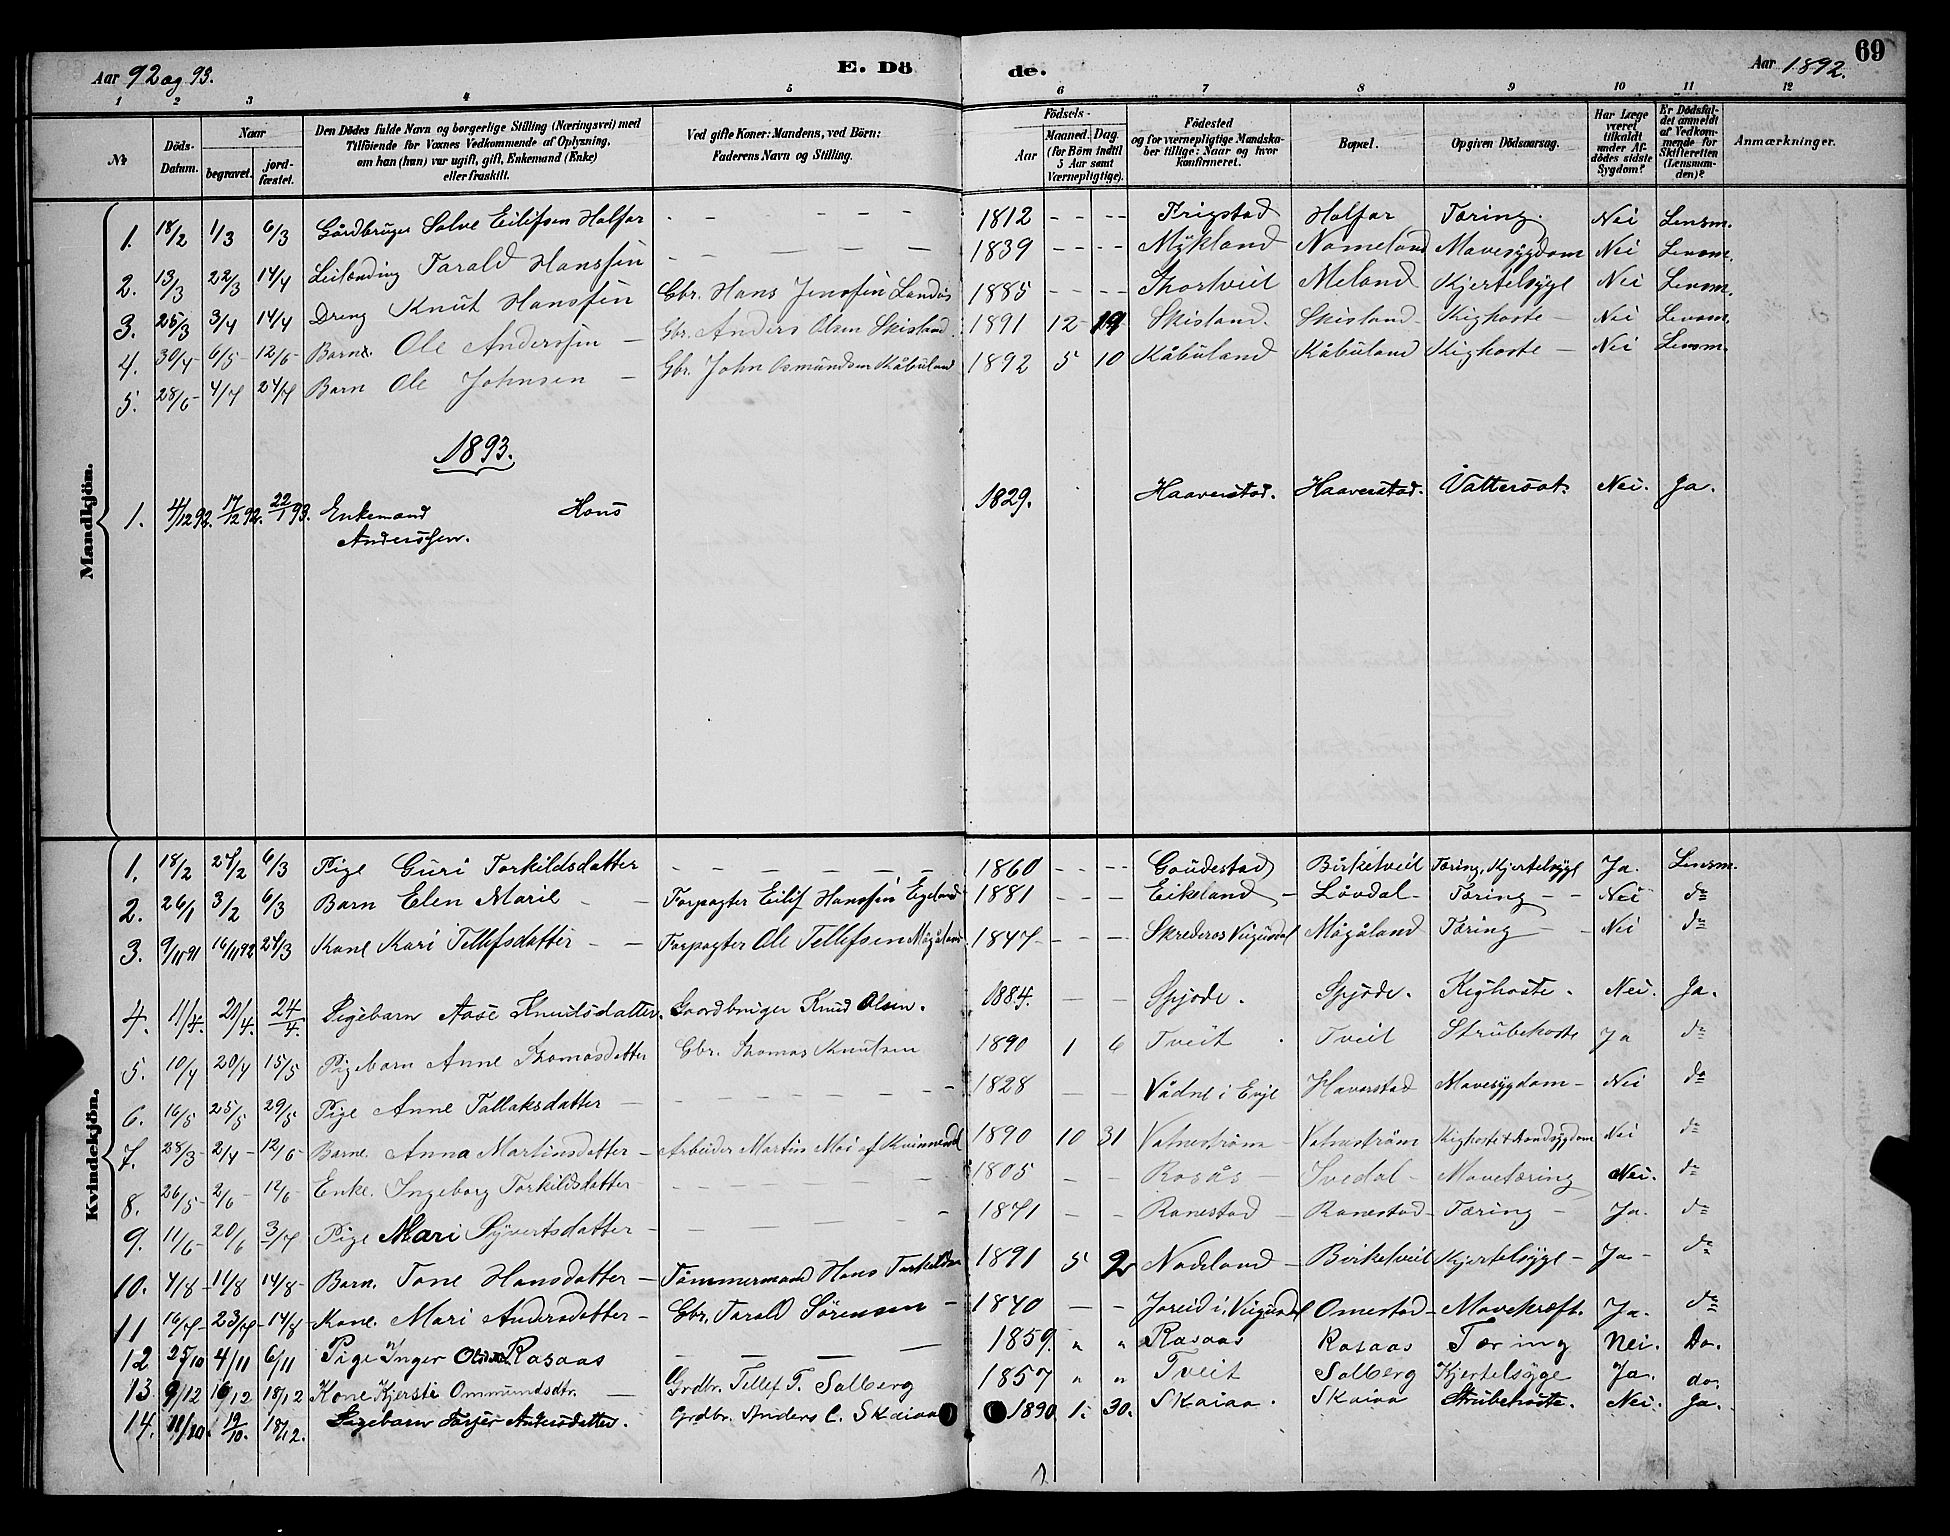 69
Aar 92 og 93. E. Dö de. Aar 1892.
1 2 3 4 5 6 7 8 9 10 11 12
№ Döds-Datum. Naar begravet. jord-fæstet. Den Dödes fulde Navn og borgerlige Stilling (Næringsvei) med Tilföiende for Voxnes Vedkommende af Oplysning, om han (hun) var ugift, gift, Enkemand (Enke) eller fraskilt. Ved gifte Koner: Mandens, ved Börn: Faderens Navn og Stilling. Födsels- Aar Maaned. Dag. (for Börn indtil 5 Aar samt Værnepligtige). Födested og for værnepligtige Mandskaber tillige: Naar og hvor konfirmeret. Bopæl. Opgiven Dödsaarsag. Har Læge været tilkaldt under Afdödes sidste Sygdom? Er Dödsfaldet anmeldt af Vedkommende for Skifteretten (Lensmanden)? Anmærkninger.
Mandkjön.
1. 18/2 1/3 6/3 Gårdbruger Salve Eilifsen Halfar - - - - - 1812 - - - - Frigstad Halfar Tæring. Nei Lensm.
2. 13/3 22/3 14/4 Leilending Tarald Hanssen - - - - - 1839 - - - - Mykland Nomeland Mavesygdom Nei Lensm.
3. 25/3 3/4 14/4 Dreng Knut Hanssen Gbr. Hans Jenssen Landås 1885 - - - - Thortveit Meland Kjertelsyge Nei Lensm.
4. 30/4 6/5 12/6 Barn Ole Anderssen - Gbr. Anders Olsen Skisland. 1891 12 19 Skisland. Skisland Kighoste - Nei Lensm.
5. 28/6 4/7 24/7 Barn Ole Johnsen - Gbr. John Osmundsen Kåbuland 1892 5 10 Kåbuland Kåbuland Kighoste - Nei Lensm.
1893.
1. 4/12 92. 17/12 92. 22/1 93. Enkemand Hans Anderssen. 1829. Haaverstad. Haaverstad. Vattersot. Nei. Ja.
Kvindekjön.
1. 18/2 27/2 6/3 Pige Guri Torkildsdatter - - - - - 1860 - - - - Goudestad Birketveit Tæring, Kjertelsyge Ja. Lensm.
2. 26/1 3/2 6/3 Barn Elen Marie - - Forpagter Eilif Hanssen Egeland 1881 - - - Eikeland - Lövdal - Tæring - - Nei do
3. 9/11 91 16/11 92 27/3 Kone Kari Tellefsdatter - - Forpagter Ole Tellefsen Mögåland 1847 - - - Skrederos Viigusdal Mögåland Tæring - - Nei do
4. 11/4. 21/4. 24/4. Pigebarn Aase Knudsdatter. Gaardbruger Knud Olsen. 1884. - - Spjode. Spjode. Kighoste. Nei. Ja.
5. 10/4 20/4 15/5 Pigebarn Anne Thomasdatter Gbr. Thomas Knutsen 1890 1 6 Tveit . Tveit Strubehoste Ja do
6. 16/5 25/5 29/5 Pige Anne Tallaksdatter - - - - - 1828 - - Vådne i Evje Haverstad Mavesygdom - Nei do
7. 28/3 - 2/4 - 12/6 - Barne. Anna Martinsdatter - Arbeider Martin Moi af Kvinnesdal 1890 10 31 Vatnestrøm - Vatnestrøm Kighoste + Bondsygdom Nei do
8. 26/5 - 2/6 - 12/6 - Enke. Ingeborg Torkildsdatter - - - - - 1805 - - Rosås Svedal - Mavetæring Nei. do
9. 11/6 - 20/6 3/7 Pige Mari Syvertsdatter - - - - - 1871 - - Ranestad - Ranestad - Tæring - Ja. do
10. 4/8 - 11/8 14/8 - Barn. Tone Hansdatter - Tömmermand Hans Torkildsen 1891 5 2 Nodeland - Birketveit Kjertelsyge - Ja - do
11 16/7 - 23/7 - 14/8 - Kone. Mari Andersdatter - Gbr. Tarald Sörensen - 1840 - - Joreid i Viigusdal Omestad - Mavekræft. Ja. do
12 25/10 4/11 6/11 Pige Inger Rasaas - - - - 1859. " " Rasaas Rasaas Tæring Nei. Do.
13. 9/12 16/12 18/12 Kone Kjersti Ommundsdtr. - Grdbr. Tellef T. Solberg 1857 " " Tveit Solberg Kjertelsyge Ja. do.
14. 11/10 19/10. 18/12. Pigebarn Andersdatter. Grdbr. Anders C. Skaiaa 1890 1. 30. Skaiaa. Skaiaa Strubehoste. Nei. Ja.